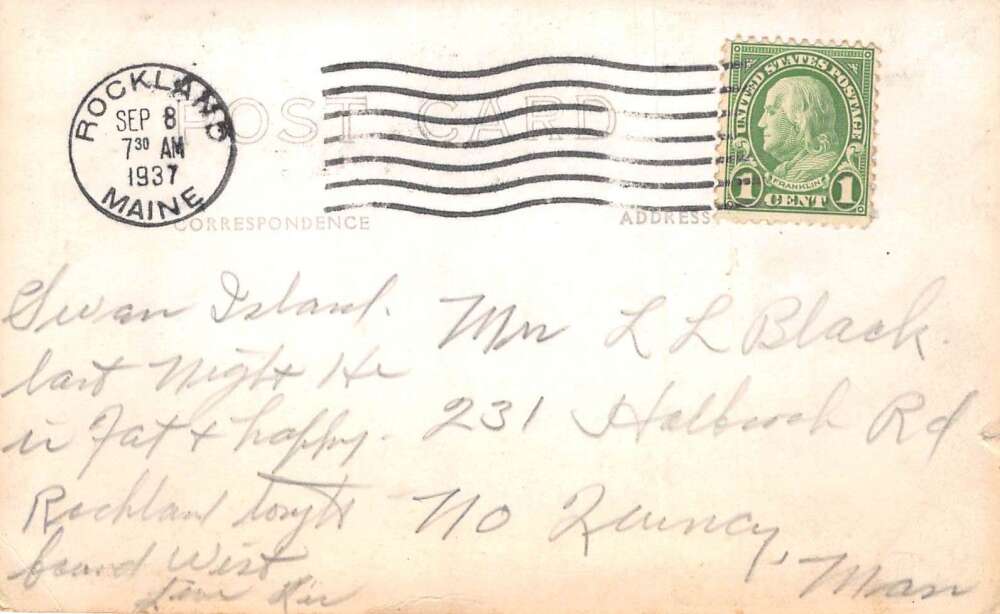 ROCKLAND
SEP 8
7 30 AM
1937
MAINE
POST CARD
CORRESPONDENCE
ADDRESS
UNITED STATES POSTAGE
FRANKLIN
1 CENT 1
Swan Island.
last night He
is Fat & happy.
Rockland tonight
bound West
Love
Mrs L L Black.
231 Holbrook Rd
No Quincy,
Mass